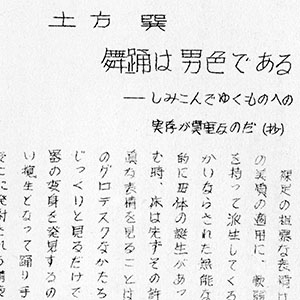 土方 巽
舞踊は男色である
──しみこんでゆくものへの
実存が貴重なのだ(抄)
の美頃の適用に、
を持って派生してくる
かりならされた無能な
的に母体の誕生があっ
む時、床は先ずその許
真な表情を見ることは
のグロテスクなかたち
じっくりと見るだけで
器の変身を発見するの
い犠牲となって踊り手